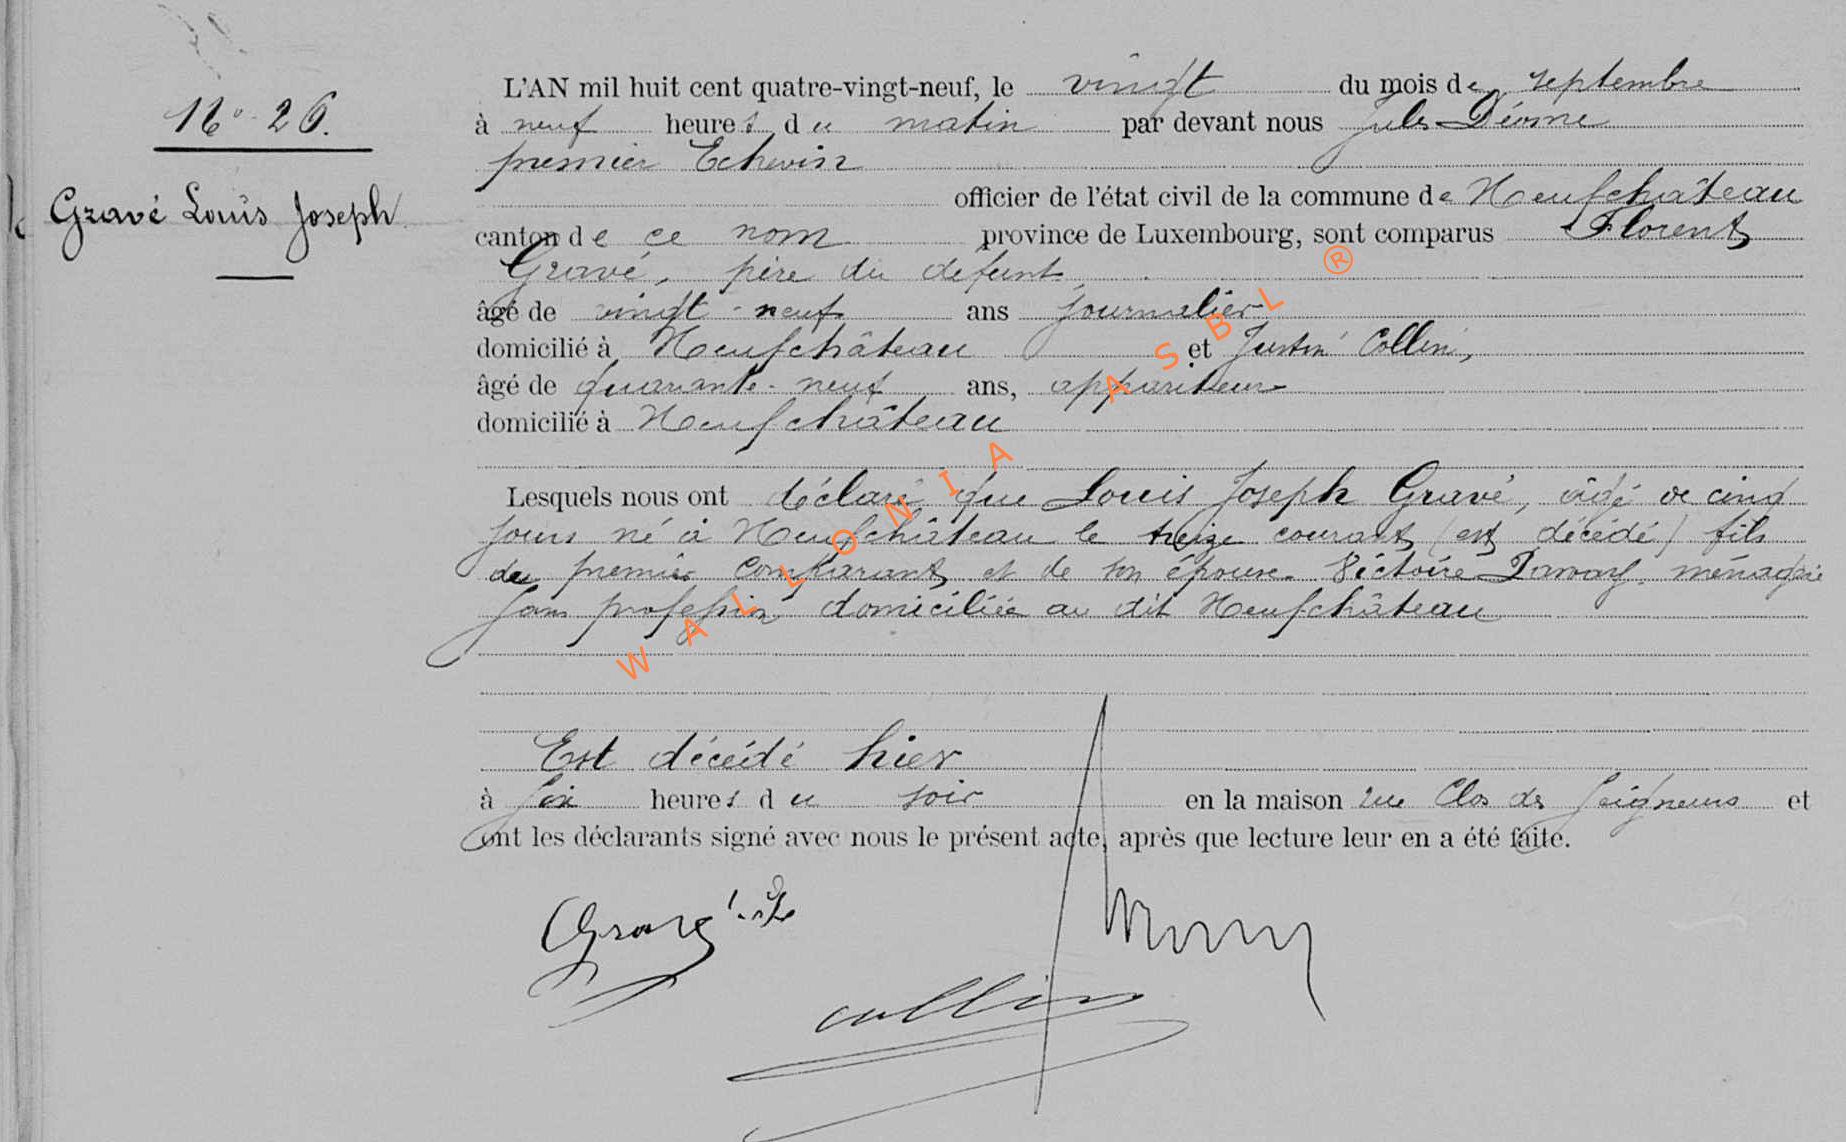 N° 26.
Gravé Louis Joseph
L'AN mil huit cent quatre-vingt-neuf, le vingt du mois de septembre
à neuf heures du matin par devant nous Jules Déome
premier Echevin
officier de l'état civil de la commune de Neufchâteau
canton de ce nom province de Luxembourg, sont comparus Florent
Gravé, père du défunt,
âgé de vingt-neuf ans journalier
domicilié à Neufchâteau et Justin Collin,
âgé de quarante-neuf ans, appariteur
domicilié à Neufchâteau
Lesquels nous ont déclaré que Louis Joseph Gravé, âgé de cinq
jours né à Neufchâteau le treize courant (est décédé) fils
du premier comparant et de son épouse Victoire ménagère
sans profession domiciliée au dit Neufchâteau
Est décédé hier
à six heures du soir en la maison rue Clos des Seigneurs et
ont les déclarants signé avec nous le présent acte, après que lecture leur en a été faite.
Gravé
Collin
WALLONIA ASBL ®